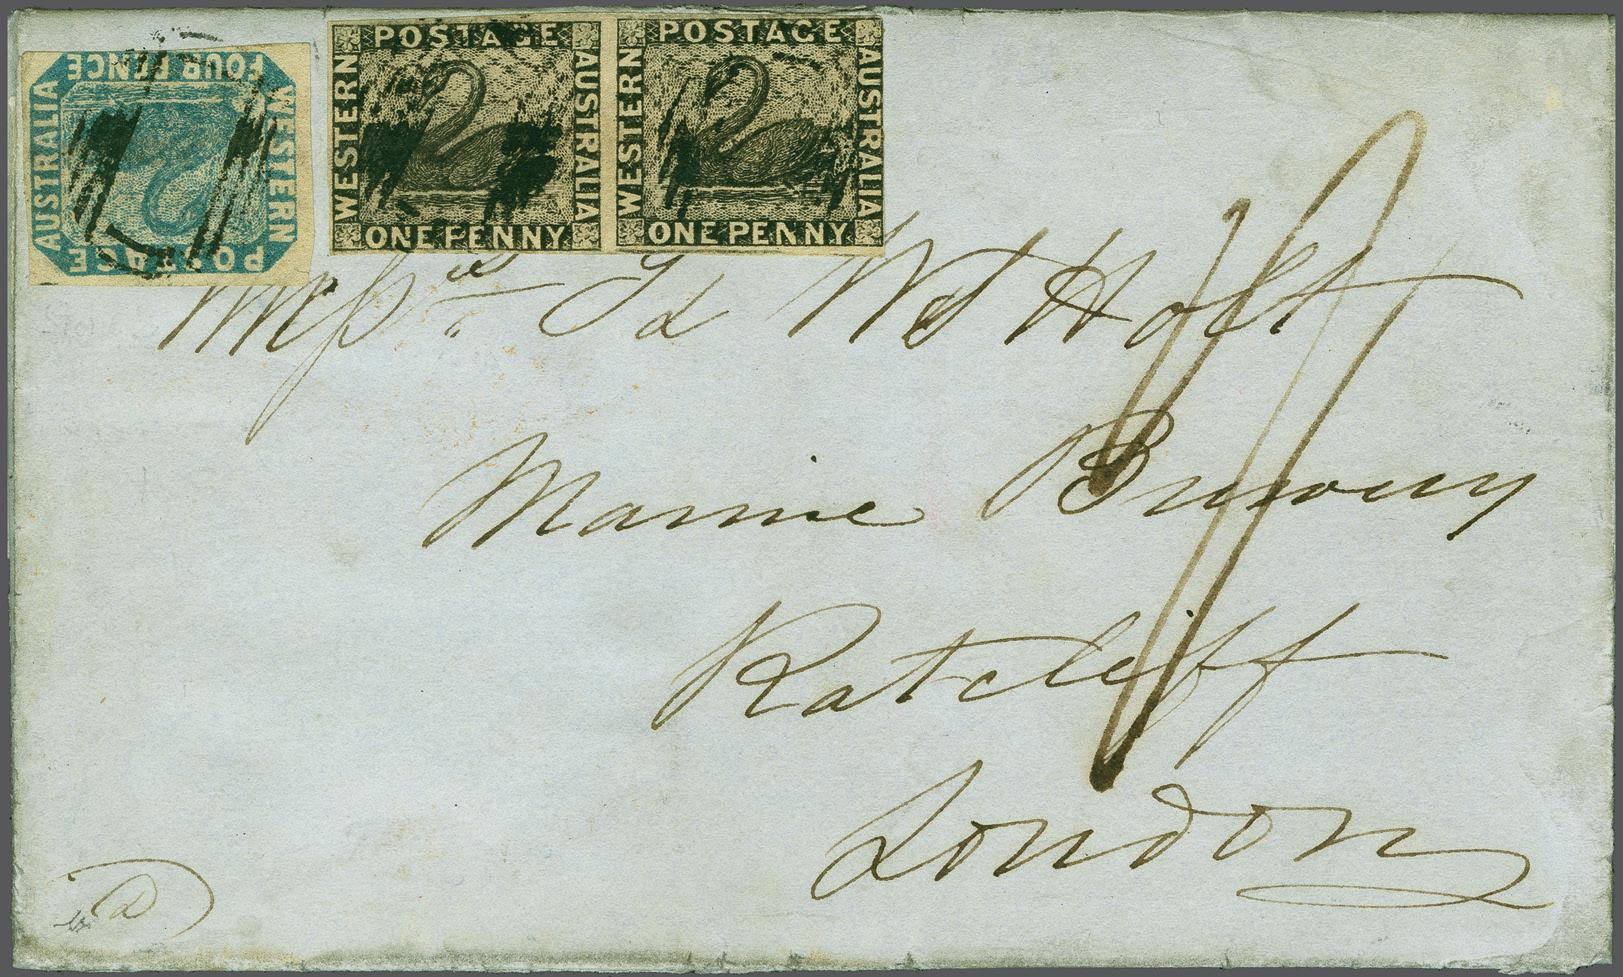 POSTAGE
FOUR PENCE
WESTERN
AUSTRALIA
POSTAGE
WESTERN
AUSTRALIA
ONE PENNY
POSTAGE
WESTERN
AUSTRALIA
ONE PENNY
Holt
Marine Brewery
Ratcliff
London